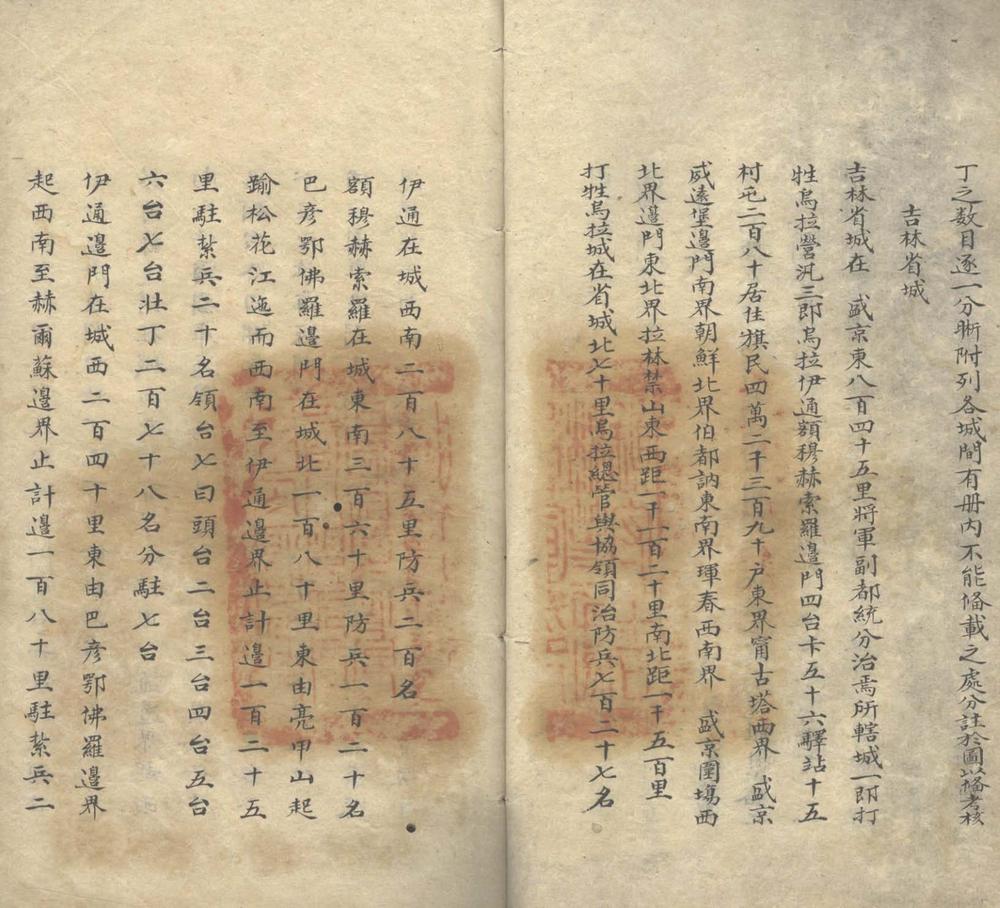 丁之数目逐一分晰附列各城間有册内不能俻載之處分註於圖以俻考核
吉林省城
吉林省城在　盛京東八百四十五里將軍副都統分治焉所轄城一即打
牲烏拉營汛三即烏拉伊通額穆赫索羅邊門四台卡五十六驛站十五
村屯二百八十居住旗民四萬二千三百九十户東界甯古塔西界　盛京
威遠堡邊門南界朝鮮北界伯都訥東南界琿春西南界　盛京圍塲西
北界邊門東北界拉林禁山東西距一千一百二十里南北距一千五百里
打牲烏拉城在省城北七十里烏拉總管與協領同治防兵七百二十七名
伊通在城西南二百八十五里防兵二百名
額穆赫索羅在城東南三百六十里防兵一百二十名
巴彦鄂佛羅邊門在城北一百八十里東由亮甲山起
踰松花江迤而西南至伊通邊界止計邊一百二十五
里駐紮兵二十名領台七曰頭台二台三台四台五台
六台七台壮丁二百七十八名分駐七台
伊通邊門在城西二百四十里東由巴彦鄂佛羅邊界
起西南至赫爾蘇邊界止計邊一百八十里駐紮兵二